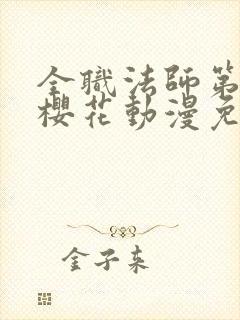 全職法師第
櫻花動漫免
金子来